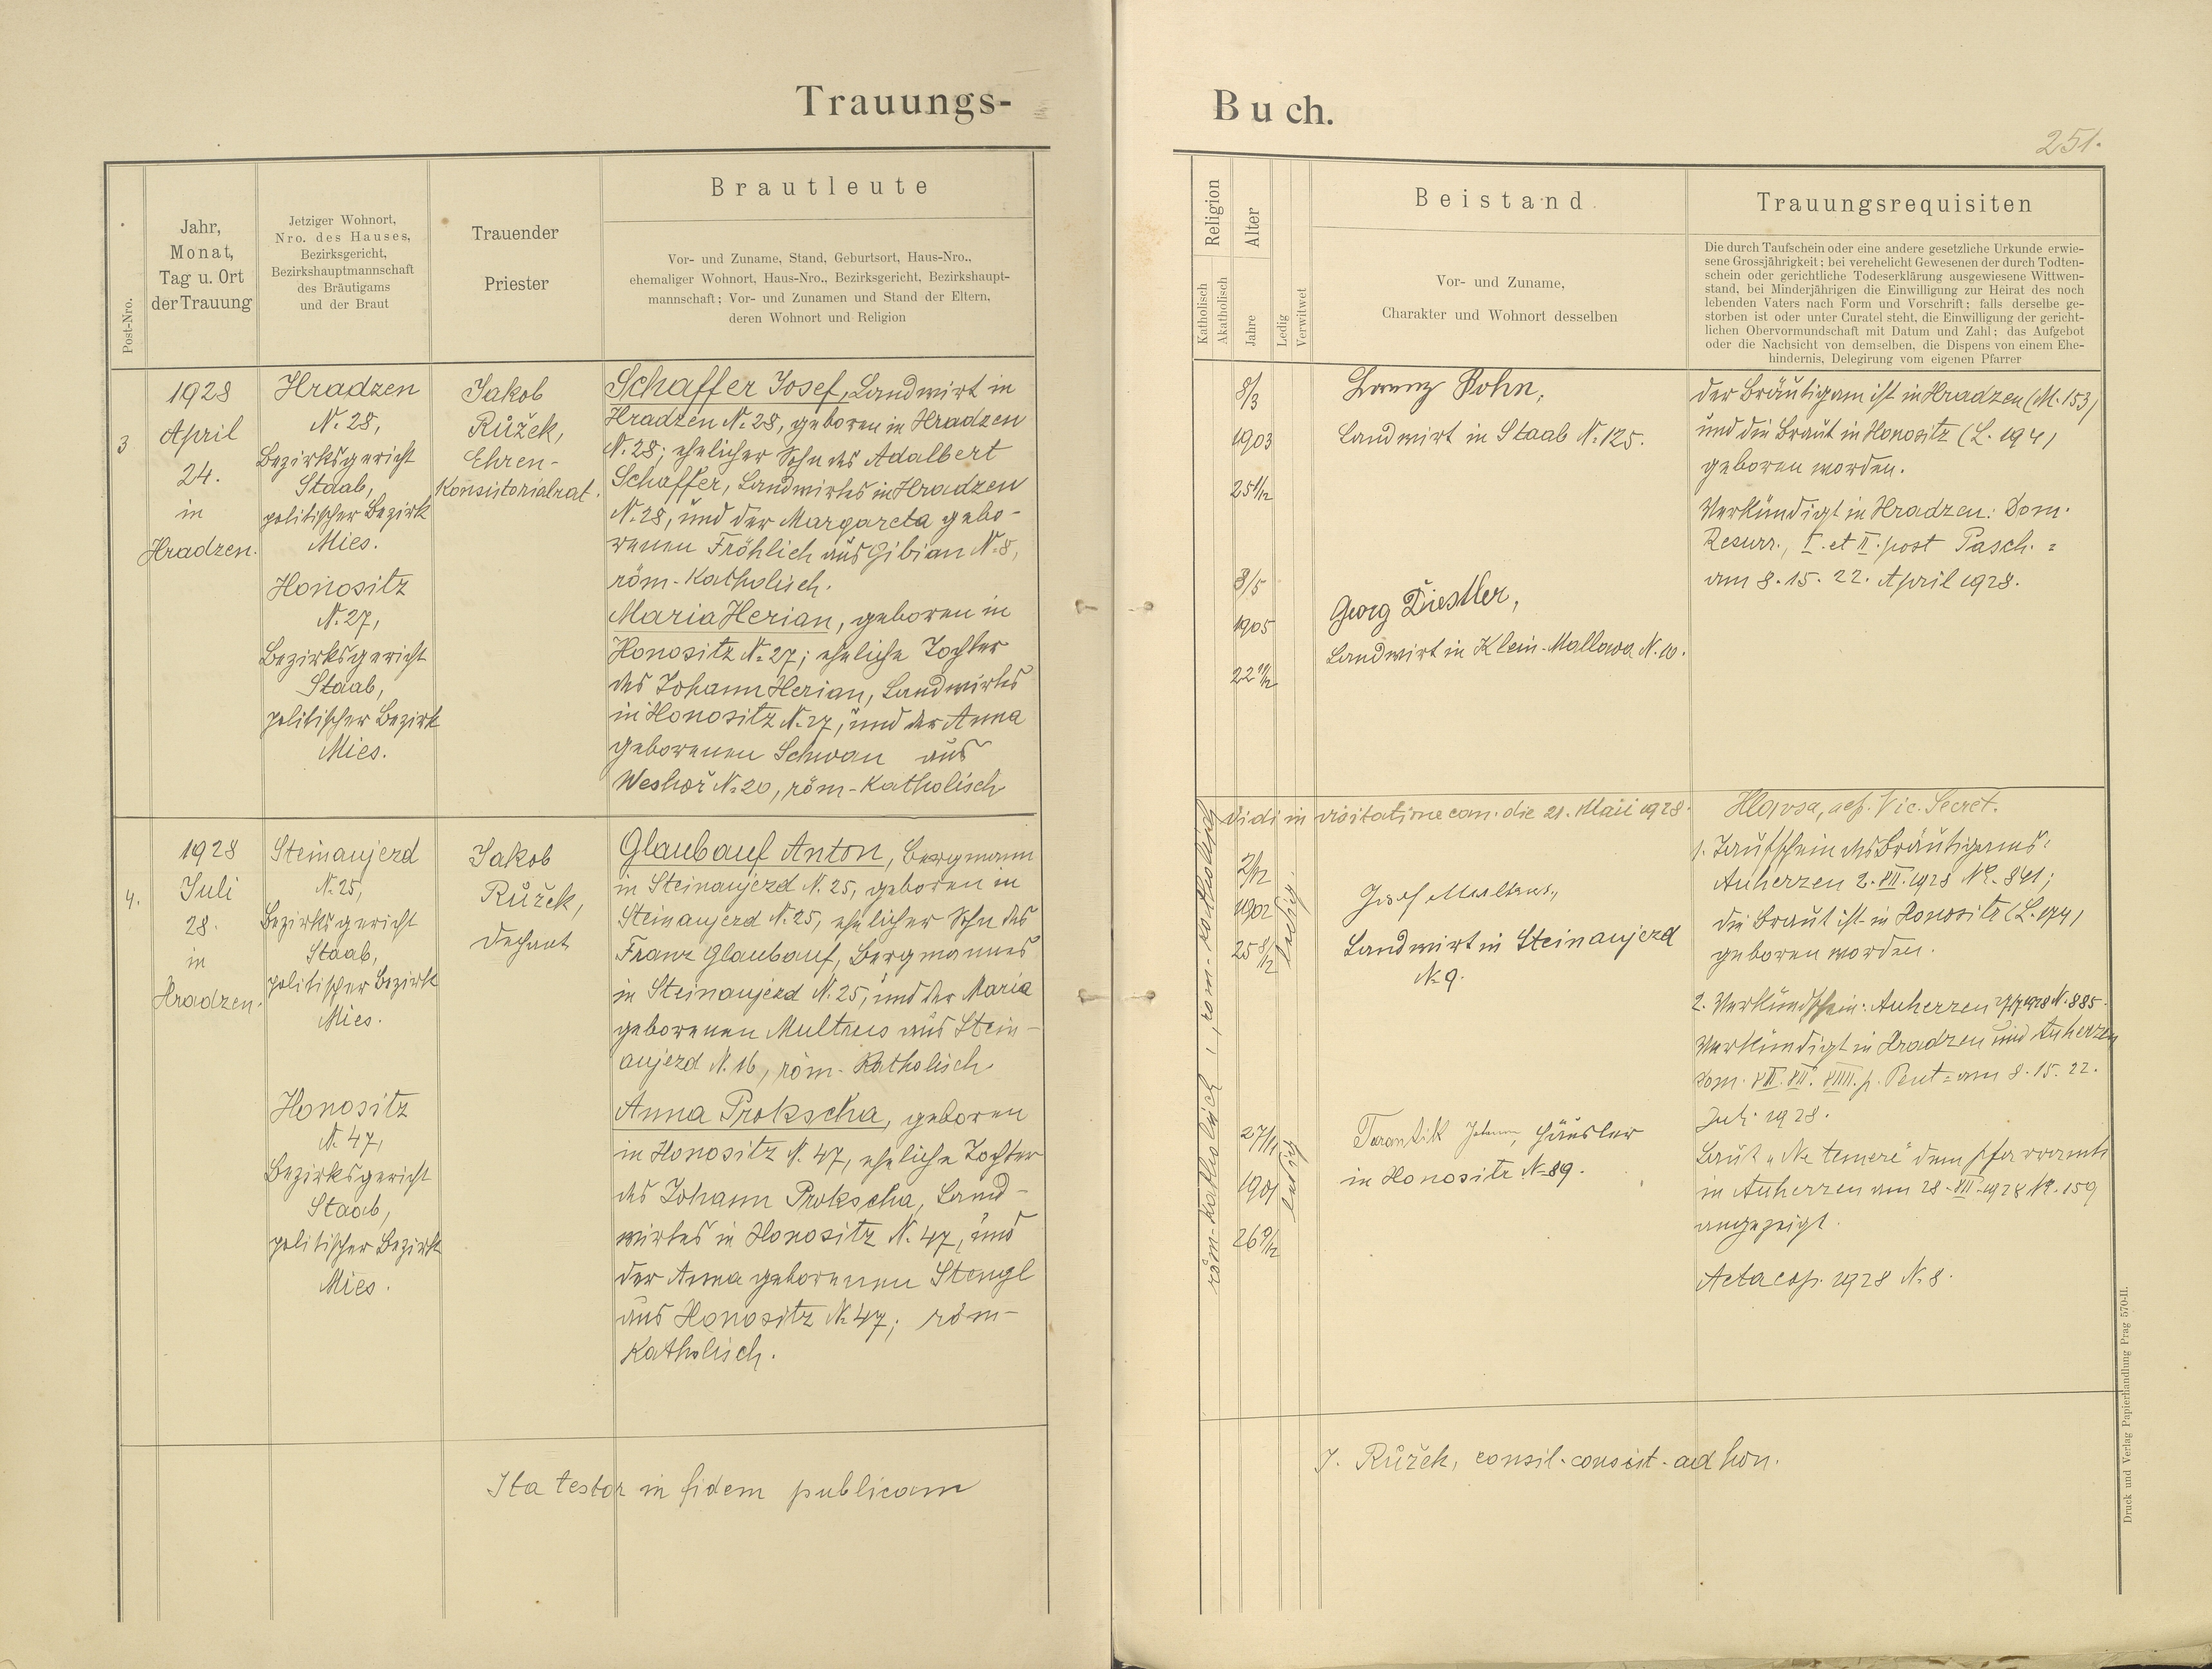 Trauungs-
Buch.
251.
Post-Nro.
Jahr,
Monat,
Tag u. Ort
der Trauung
Jetziger Wohnort,
Nro. des Hauses,
Bezirksgericht,
Bezirkshauptmannschaft
des Bräutigams
und der Braut
Trauender
Priester
Brautleute
Vor- und Zuname, Stand, Geburtsort, Haus-Nro.,
ehemaliger Wohnort, Haus-Nro., Bezirksgericht, Bezirkshaupt-
mannschaft; Vor- und Zunamen und Stand der Eltern,
deren Wohnort und Religion
Religion
Katholisch
Akatholisch
Alter
Jahre
Ledig
Verwitwet
Beistand
Vor- und Zuname,
Charakter und Wohnort desselben
Trauungsrequisiten
Die durch Taufschein oder eine andere gesetzliche Urkunde erwie-
sene Grossjährigkeit; bei verehelicht Gewesenen der durch Todten-
schein oder gerichtliche Todeserklärung ausgewiesene Wittwen-
stand, bei Minderjährigen die Einwilligung zur Heirat des noch
lebenden Vaters nach Form und Vorschrift; falls derselbe ge-
storben ist oder unter Curatel steht, die Einwilligung der gericht-
lichen Obervormundschaft mit Datum und Zahl; das Aufgebot
oder die Nachsicht von demselben, die Dispens von einem Ehe-
hindernis, Delegirung vom eigenen Pfarrer
3
1928
April
24.
in
Hradzen.
Hradzen
N. 28,
Bezirksgericht
Staab,
politischer Bezirk
Mies.
Honositz
N. 27,
Bezirksgericht
Staab,
politischer Bezirk
Mies.
Jakob
Růžek,
Ehren-
Konsistorialrat.
Schaffer Josef, Landwirt in
Hradzen N. 28, geboren in Hradzen
N. 28; ehelicher Sohn des Adalbert
Schaffer, Landwirtes in Hradzen
N. 28, und der Margareta gebo-
renen Fröhlich aus Gibian N. 8,
röm-katholisch.
Maria Herian, geboren in
Honositz N. 27; eheliche Tochter
des Johann Herian, Landwirtes
in Honositz N. 27, und der Anna
geborenen Schwan aus
Weshoř N. 20, röm-katholisch
8/3
1903
25 1/12
8/5
1905
22 11/12
Pohn,
Landwirt in Staab N. 125.
Georg
Landwirt in Klein-Mallowa N. 10.
der Bräutigam ist in Hradzen (M. 153)
und die Braut in Honositz (L. 194)
geboren worden.
Verkündigt in Hradzen: Dom.
Resurr., I. et II. post Pasch. =
am 8. 15. 22. April 1928.
Vidi in visitatione can. die 21. Maii 1928.
4.
1928
Juli
28.
in
Hradzen.
Steinaujezd
N. 25,
Bezirksgericht
Staab,
politischer Bezirk
Mies.
Honositz
N. 47,
Bezirksgericht
Staab,
politischer Bezirk
Mies.
Jakob
Růžek,
Dechant
Glaubauf Anton, Bergmann
in Steinaujezd N. 25, geboren in
Steinaujezd N. 25, ehelicher Sohn des
Franz Glaubauf, Bergmannes
in Steinaujezd N. 25, und der Maria
geborenen Multrus aus Stein-
aujezd N. 16, röm-Katholisch.
Anna Prokscha, geboren
in Honositz N. 47, eheliche Tochter
des Johann Prokscha, Land-
wirtes in Honositz N. 47, und
der Anna geborenen Stengl
aus Honositz N. 47; röm-
katholisch.
röm-katholisch, röm-katholisch
2/12
1902
25 8/12
ledig.
27/11
1901
26
ledig
Josef Multrus,
Landwirt in Steinaujezd
N. 9.
Tarantik Johann, Häusler
in Honositz N. 89.
1. Taufschein des Bräutigams:
Auherzen 2. VII. 1928 Nº. 841;
die Braut ist in Honositz (L. 174)
geboren worden.
2. Verkündschein: Auherzen N. 885.
Verkündigt in Hradzen und Auherzen
Dom. p. Pent = am 8. 15. 22.
Juli 1928.
Laut "Ne temere" dem Pfarramte
in Auherzen am 28. VII. 1928 Nº. 159
angezeigt.
Acta cop. 1928 N. 8.
Ita testor in fidem publicam
J. Růžek, consil. consist. ad hon.
Druck und Verlag Papierhandlung Prag 570-II.